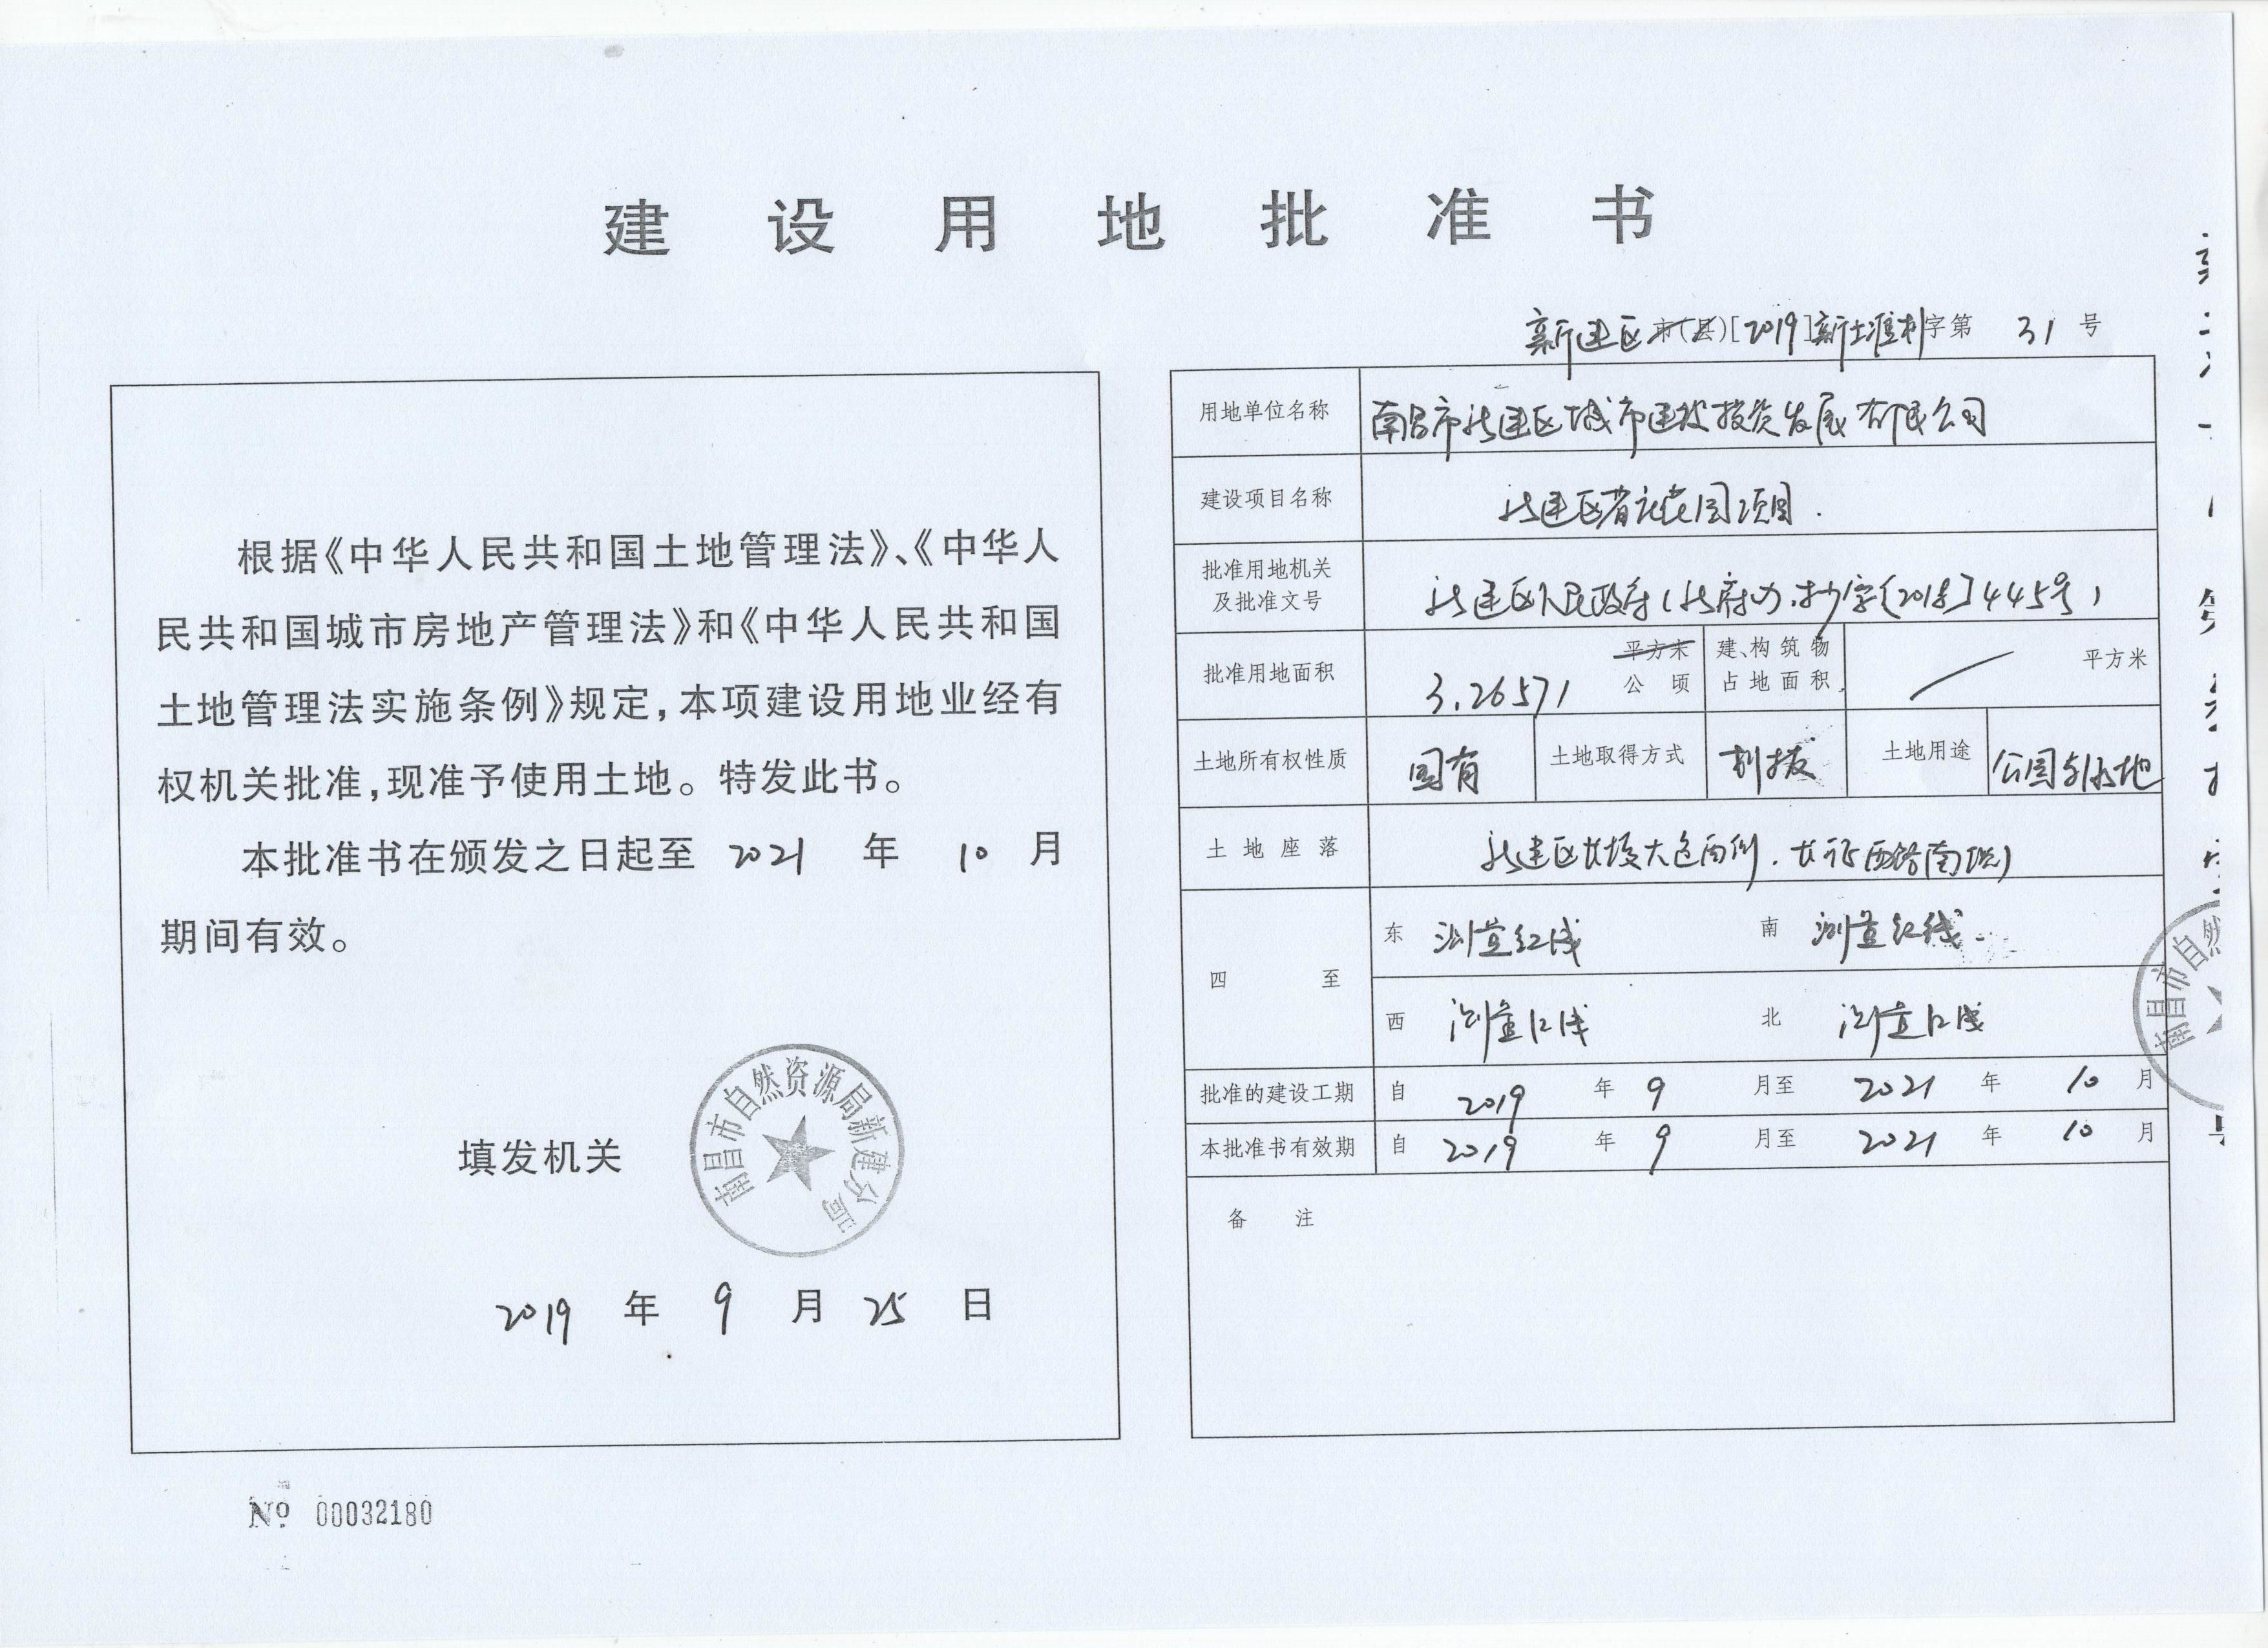 建设用地批准书
新建区市(县)[2019]新土准书字第 31 号
根据《中华人民共和国土地管理法》、《中华人
民共和国城市房地产管理法》和《中华人民共和国
土地管理法实施条例》规定,本项建设用地业经有
权机关批准,现准予使用土地。特发此书。
本批准书在颁发之日起至 2021 年 10 月
期间有效。
填发机关
南昌市自然资源局新建分局
2019 年 9 月 25 日
№ 00032180
用地单位名称 南昌市新建区城市建设投资发展有限公司
建设项目名称 新建区花园项目.
批准用地机关
及批准文号 新建区人民政府(新府办抄字[2018]445号)
批准用地面积 3.26571 平方米 公顷 建、构筑物占地面积 平方米
土地所有权性质 国有 土地取得方式 划拨 土地用途 公园与绿地
土地座落 新建区长堎大道西侧、长征西路南
四至 东 测量红线 南 测量红线
西 测量红线 北 测量红线
批准的建设工期 自 2019 年 9 月至 2021 年 10 月
本批准书有效期 自 2019 年 9 月至 2021 年 10 月
备注
南昌市自然